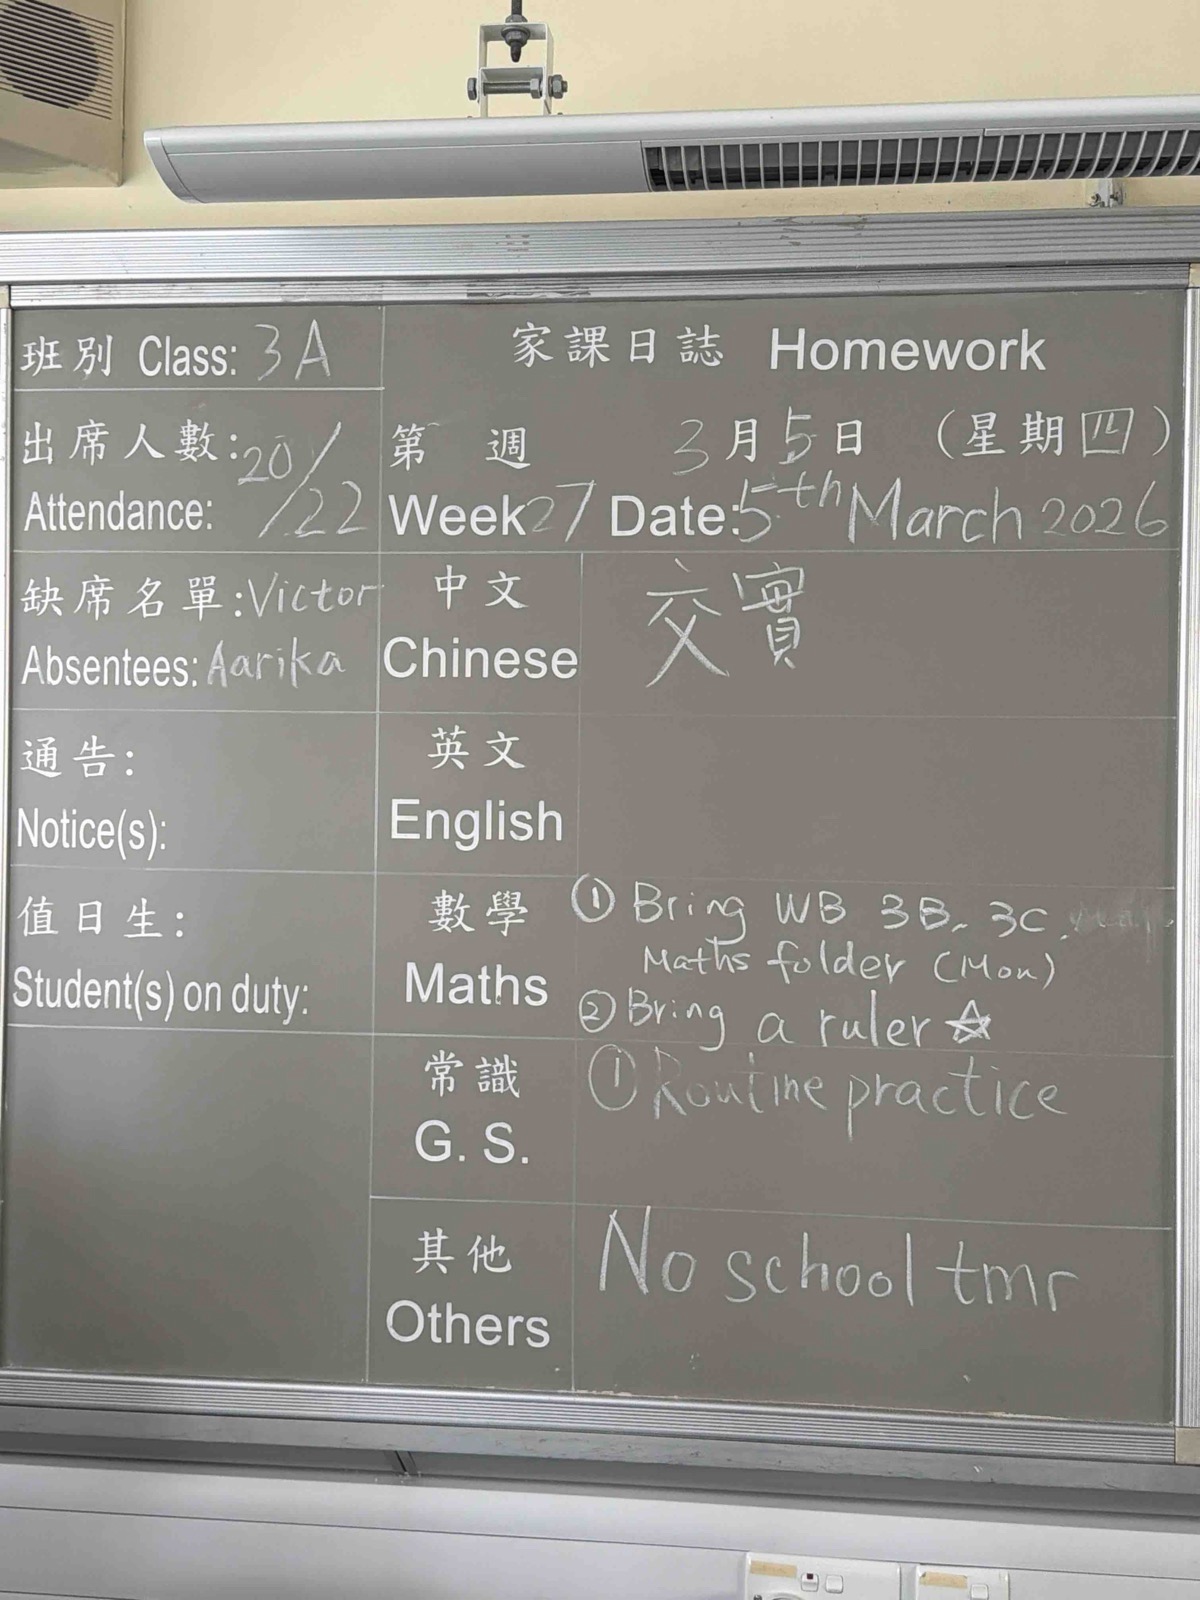 班別 Class: 3A
家課日誌 Homework
出席人數: 20/22
Attendance:
第 週 3月5日 (星期四)
Week 27 Date: 5th March 2026
缺席名單: Victor
Absentees: Aarika
中文
Chinese
交實
通告:
Notice(s):
英文
English
值日生:
Student(s) on duty:
數學
Maths
① Bring WB 3B, 3C,
Maths folder (Mon)
② Bring a ruler ☆
常識
G. S.
① Routine practice
其他
Others
No school tmr